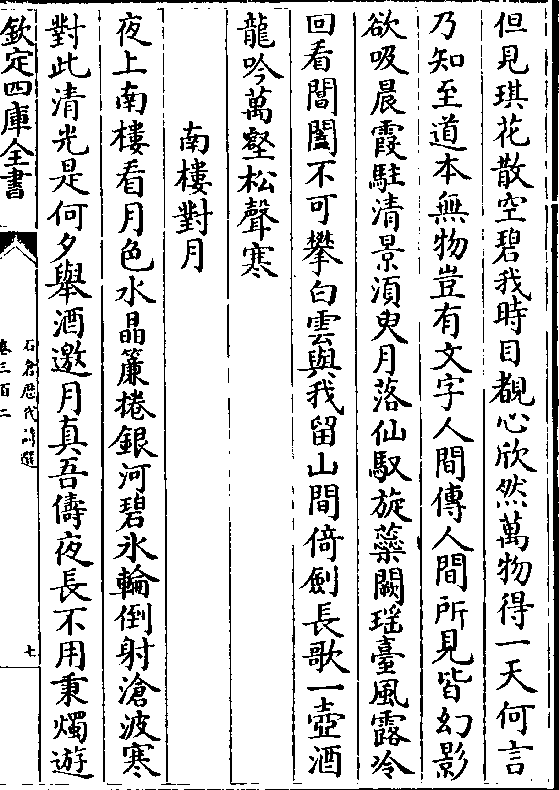 但見琪花散空碧我時目覩心欣然萬物得一天何言
乃知至道本無物豈有文字人間傳人間所見皆幻影
欲吸晨霞駐清景湏臾月落仙馭旋蘂闕瑶臺風露冷
回看閶闔不可攀白雲與我留山間倚劍長歌一壺酒
龍吟萬壑松聲寒
南樓對月
夜上南樓看月色水晶簾捲銀河碧氷輪倒射滄波寒
對此清光是何夕舉酒邀月真吾儔夜長不用秉燭遊
欽定四庫全書
石倉歴代詩選
卷三百二
七